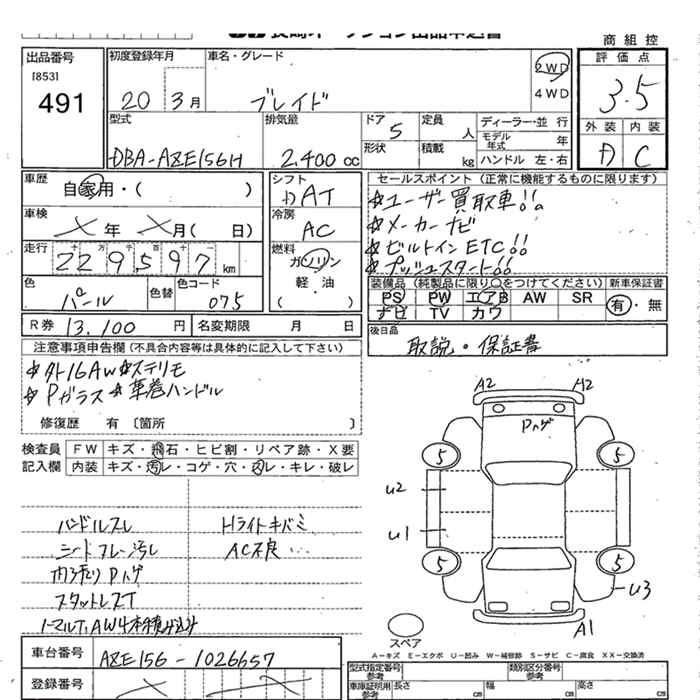 商組控
出品番号
[853]
491
初度登録年月
20年3月
車名・グレード
ブレイド
2WD
4WD
評価点
3.5
外装 内装
A C
型式
DBA-AZE156H
排気量
2,400cc
ドア 5
形状
定員 人
積載 kg
ディーラー・並行
モデル年式 年
ハンドル 左・右
車歴
自家用・( )
シフト
AT
セールスポイント (正常に機能するものに限ります)
☆ユーザー買取車!!
☆メーカーナビ
☆ビルトインETC!!
☆プッシュスタート!!
車検
年 月( 日)
冷房
AC
走行
十万 千 百 十
229,597km
燃料
ガソリン
軽・油
( )
色
パール
色替
色コード
075
装備品 (純製品に限り○をつけてください)
新車保証書
PS PW エアB AW SR
ナビ TV カワ
有・無
R券 13,100円
名変期限 月 日
後日品
取説・保証書
注意事項申告欄(不具合内容等は具体的に記入して下さい)
☆外16AW☆ステリモ
☆Pガラス☆革巻ハンドル
修復歴 有〔箇所 〕
検査員
記入欄
FW キズ・飛石・ヒビ割・リペア跡・X要
内装 キズ・汚レ・コゲ・穴・凹レ・キレ・破レ
ハンドルスレ
Hライトキバミ
シートフレーム汚し
AC不良…
内張りPハゲ
スタットレスT
ノーマルT,AW4本積み込み
A2 A2
Pハゲ
5 5
U2
U1
5 5
U3
A1
スペア
A-キズ E-エクボ U-凹み W-補修跡 S-サビ C-腐食 XX-交換済
車台番号
AZE156-1026657
登録番号
型式指定番号
参考
類別区分番号
参考
車庫証明用
参考
長さ cm
幅 cm
高さ cm